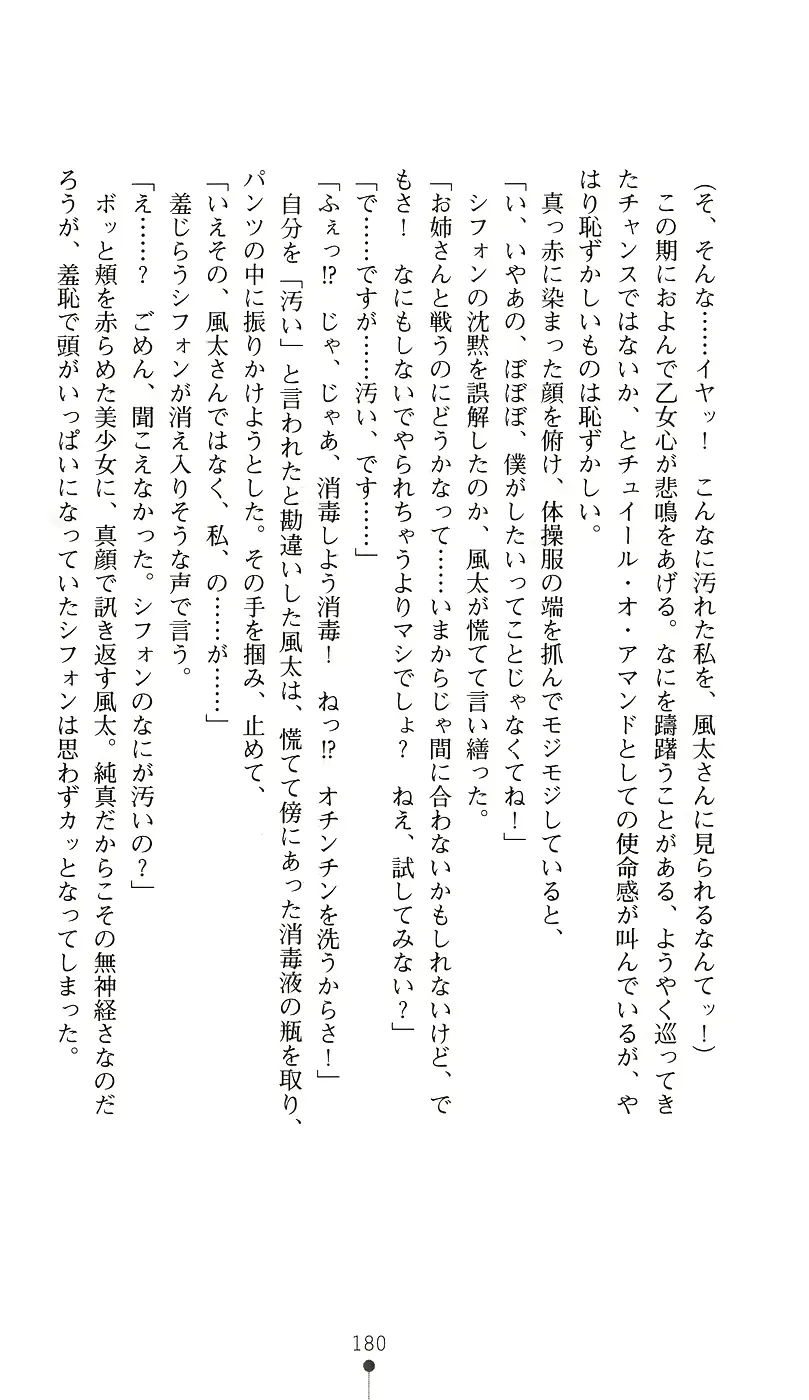 (そ、そんな……イヤッ！　こんなに汚れた私を、風太さんに見られるなんてッ！)
この期におよんで乙女心が悲鳴をあげる。なにを躊躇うことがある、ようやく巡ってき
たチャンスではないか、とチュイール・オ・アマンドとしての使命感が叫んでいるが、や
はり恥ずかしいものは恥ずかしい。
真っ赤に染まった顔を俯け、体操服の端を抓んでモジモジしていると、
「い、いやあの、ぼぼぼ、僕がしたいってことじゃなくてね！」
シフォンの沈黙を誤解したのか、風太が慌てて言い繕った。
「お姉さんと戦うのにどうかなって……いまからじゃ間に合わないかもしれないけど、で
もさ！　なにもしないでやられちゃうよりマシでしょ？　ねえ、試してみない？」
「で……ですが……汚い、です……」
「ふぇっ!?　じゃ、じゃあ、消毒しよう消毒！　ねっ!?　オチンチンを洗うからさ！」
自分を「汚い」と言われたと勘違いした風太は、慌てて傍にあった消毒液の瓶を取り、
パンツの中に振りかけようとした。その手を掴み、止めて、
「いえその、風太さんではなく、私、の……が……」
羞じらうシフォンが消え入りそうな声で言う。
「え……？　ごめん、聞こえなかった。シフォンのなにが汚いの？」
ボッと頬を赤らめた美少女に、真顔で訊き返す風太。純真だからこその無神経さなのだ
ろうが、羞恥で頭がいっぱいになっていたシフォンは思わずカッとなってしまった。
180